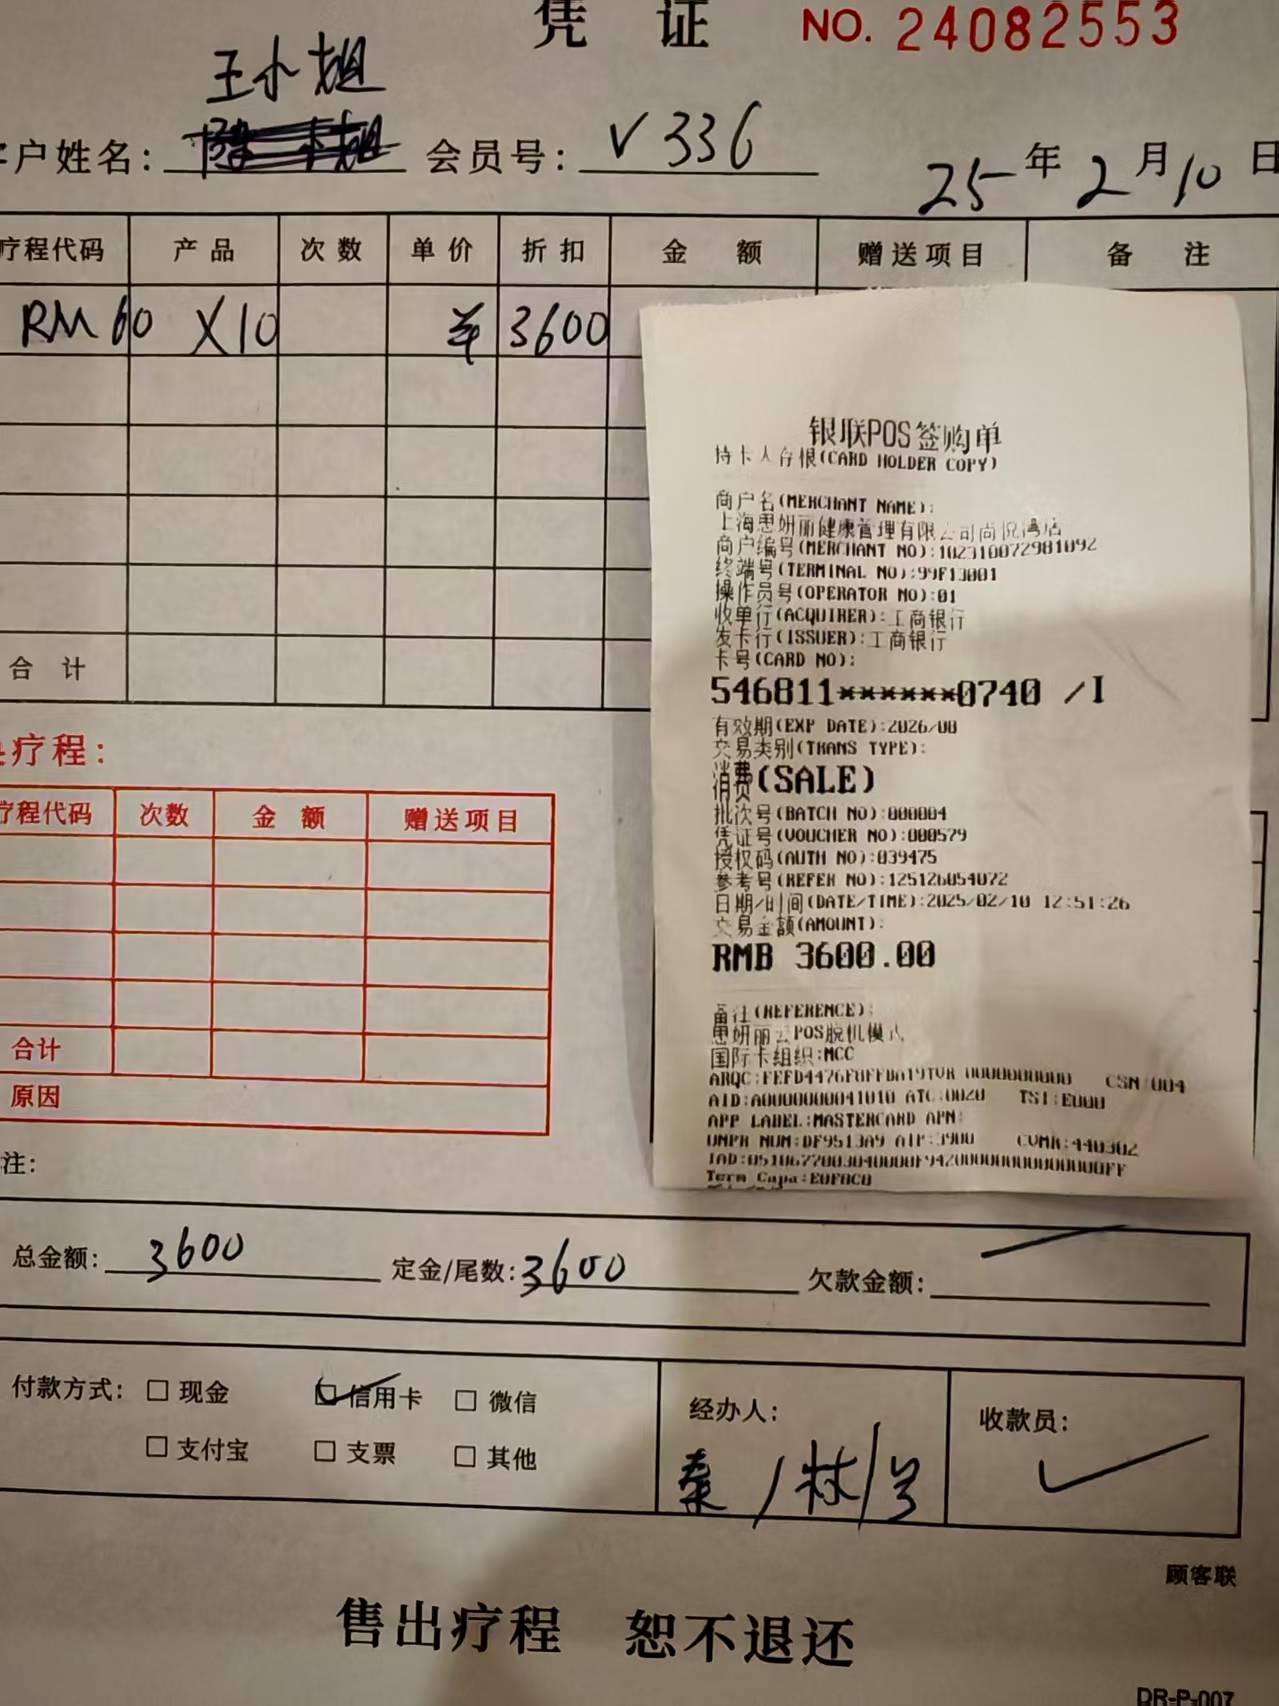 凭 证 NO. 24082553
王小姐
户姓名: 会员号: V336 25年2月10日
疗程代码 产品 次数 单价 折扣 金额 赠送项目 备注
RM60 X10 ¥ 3600
合计
银联POS签购单
持卡人存根(CARD HOLDER COPY)
商户名(MERCHANT NAME):
上海思妍丽健康管理有限公司尚悦湾店
商户编号(MERCHANT NO):102310072981092
终端号(TERMINAL NO):99F13001
操作员号(OPERATOR NO):01
收单行(ACQUIRER):工商银行
发卡行(ISSUER):工商银行
卡号(CARD NO):
546811******0740 /I
有效期(EXP DATE):2026/08
交易类别(TRANS TYPE):
消费(SALE)
批次号(BATCH NO):000004
凭证号(VOUCHER NO):000579
授权码(AUTH NO):039475
参考号(REFER NO):125126054072
日期/时间(DATE/TIME):2025/02/10 12:51:26
交易金额(AMOUNT):
RMB 3600.00
备注(REFERENCE):
思妍丽云POS脱机模式
国际卡组织:MCC
ARQC:FEFD4476F8FFDA19TVR 0000000000 CSN:004
AID:A0000000041010 ATC:0020 TSI:E000
APP LABEL:MASTERCARD APN:
UNPR NUM:DF9513A9 AIP:3900 CVMR:440302
Term Capa:E0F0C8
疗程:
疗程代码 次数 金额 赠送项目
合计
原因
注:
总金额: 3600 定金/尾数: 3600 欠款金额:
付款方式: 现金 信用卡 微信 经办人: 收款员:
支付宝 支票 其他
顾客联
售出疗程 恕不退还
DR-P-007